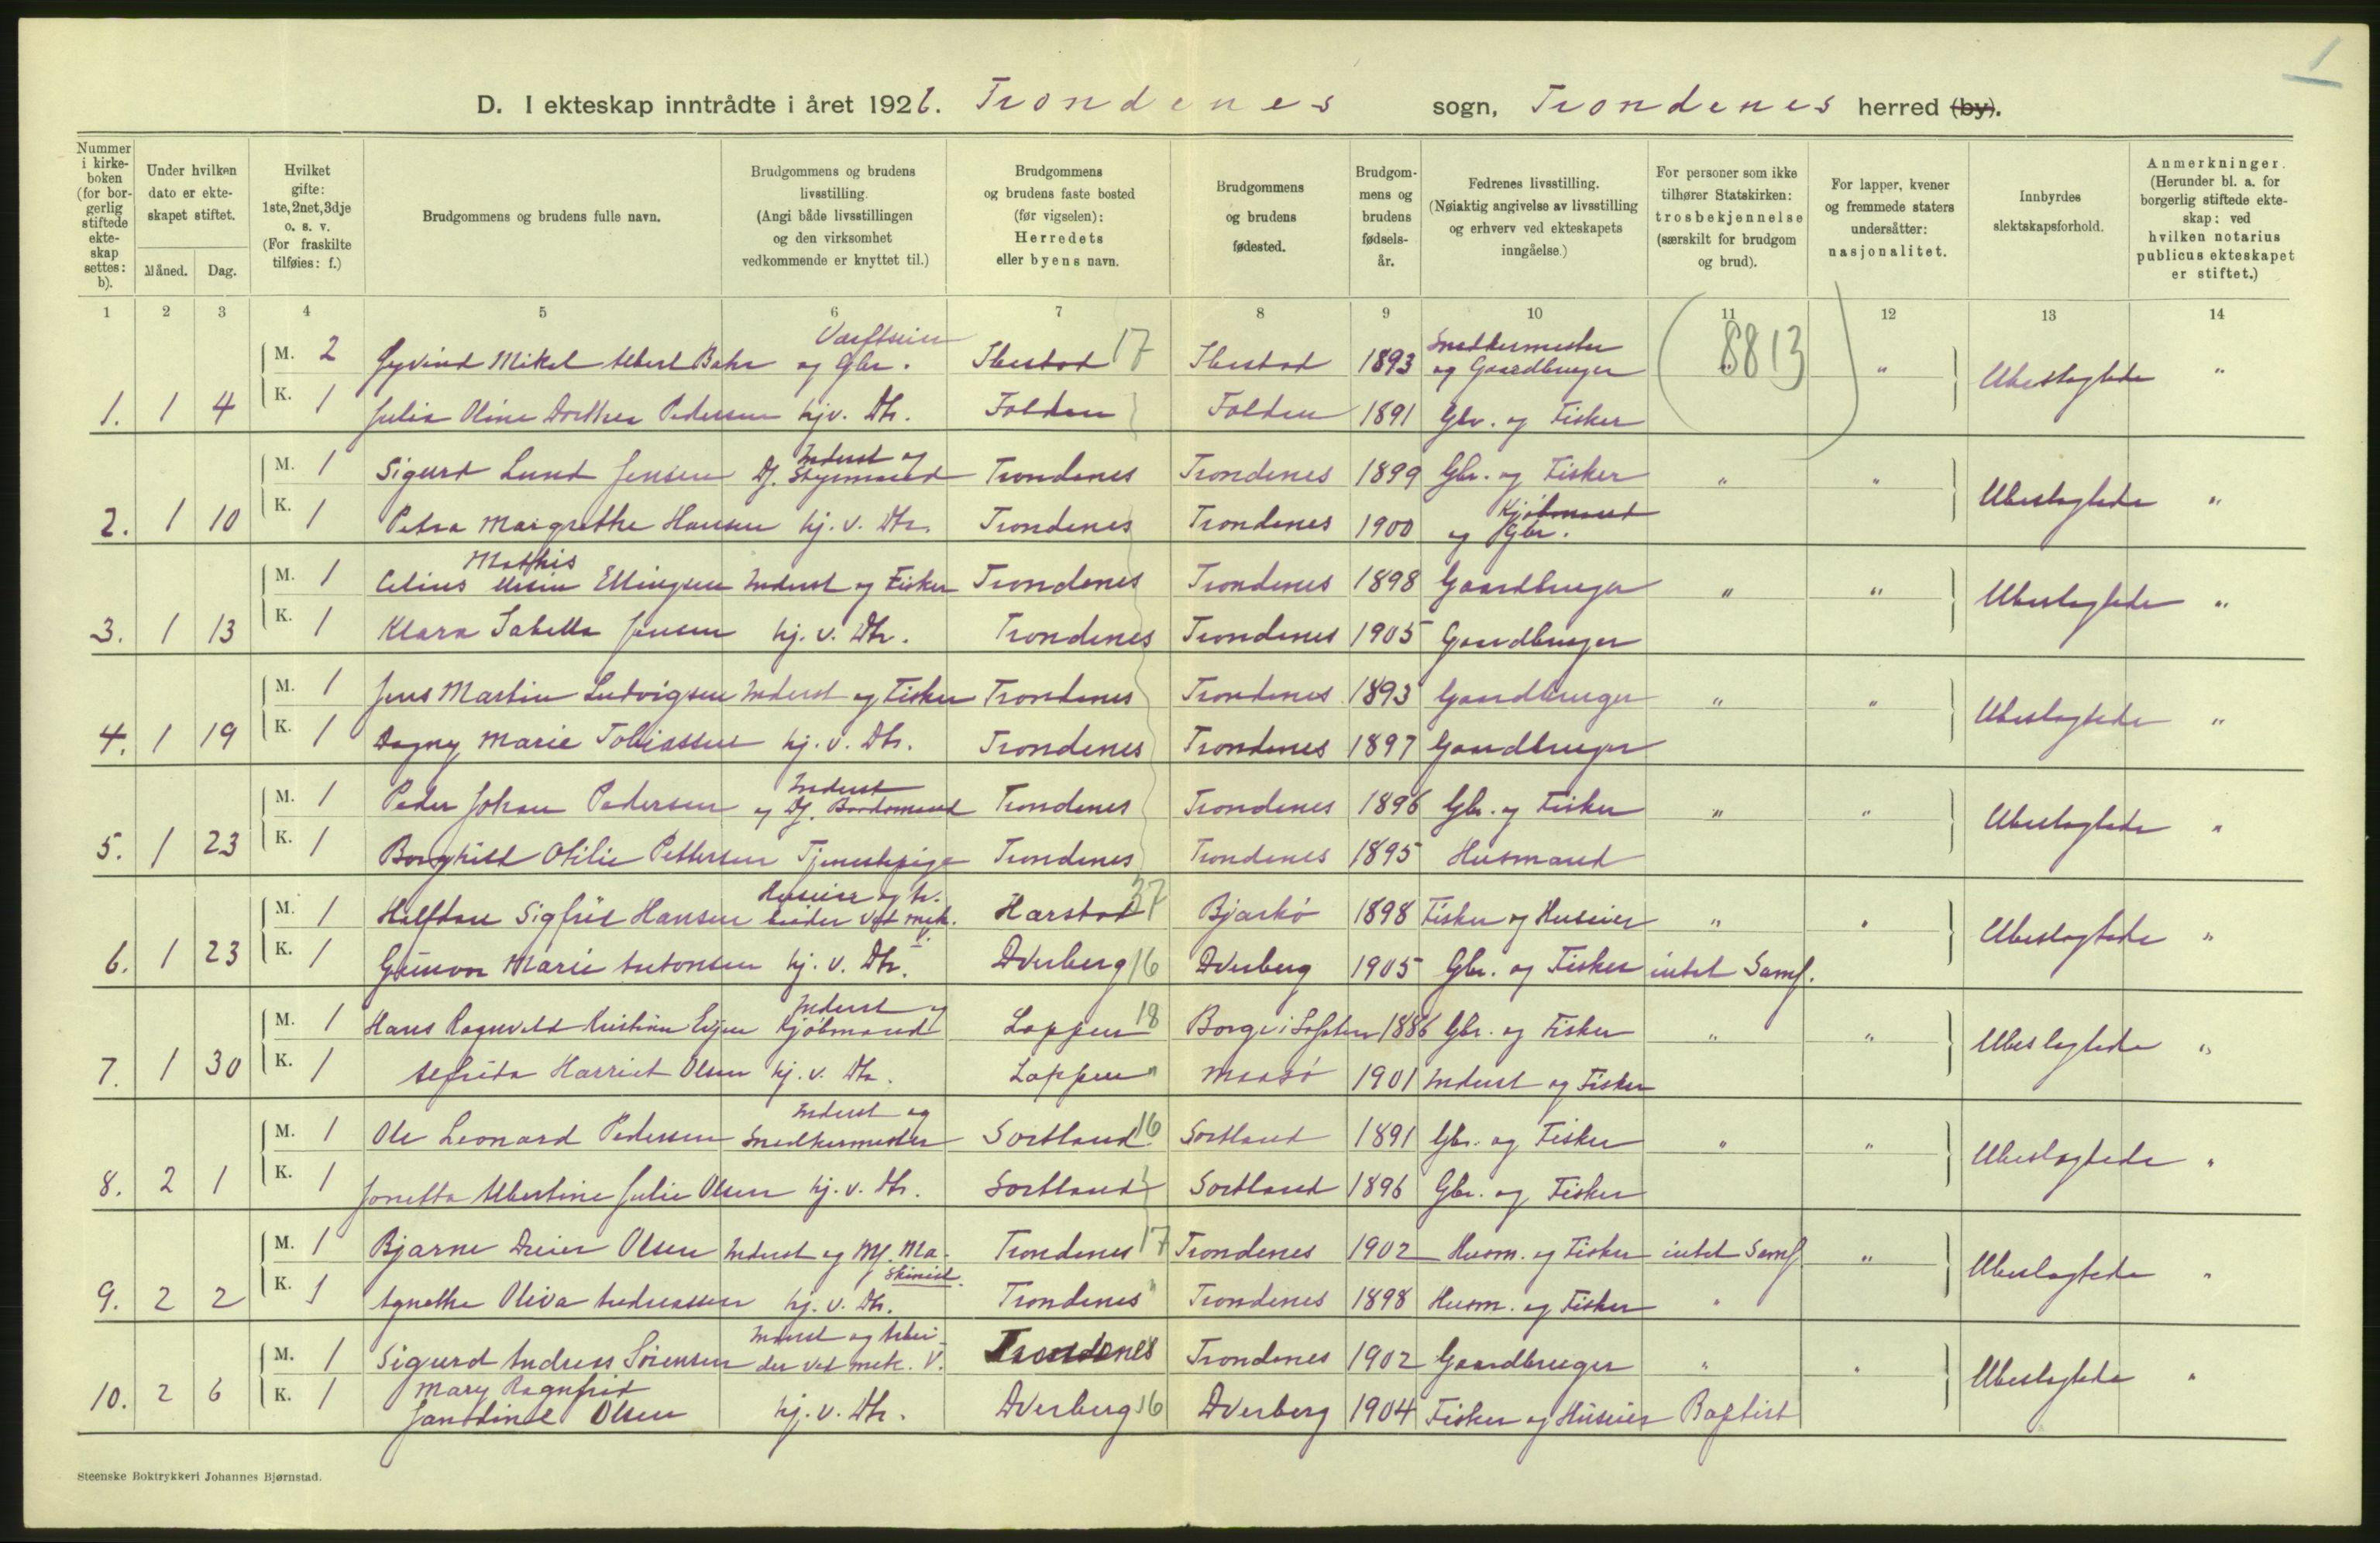 1
D. I ekteskap inntrådte i året 1926. Trondenes sogn, Trondenes herred (by).
Nummer i kirke-boken (for bor-gerlig stiftede ekte-skap settes: b).
Under hvilken dato er ekte-skapet stiftet.
Måned. Dag.
Hvilket gifte: 1ste, 2net, 3dje o. s. v. (For fraskilte tilføies: f.)
Brudgommens og brudens fulle navn.
Brudgommens og brudens livsstilling. (Angi både livsstillingen og den virksomhet vedkommende er knyttet til.)
Brudgommens og brudens faste bosted (før vigselen): Herredets eller byens navn.
Brudgommens og brudens fødested.
Brudgom-mens og brudens fødsels-år.
Fedrenes livsstilling. (Nøiaktig angivelse av livsstilling og erhverv ved ekteskapets inngåelse.)
For personer som ikke tilhører Statskirken: trosbekjennelse (særskilt for brudgom og brud).
For lapper, kvener og fremmede staters undersåtter: nasjonalitet.
Innbyrdes slektskapsforhold.
Anmerkninger. (Herunder bl. a. for borgerlig stiftede ekte-skap: ved hvilken notarius publicus ekteskapet er stiftet.)
1 2 3 4 5 6 7 8 9 10 11 12 13 14
M. 2 Øyvind Mikal Albert Bahr og Gbr. Ibestad 17 Ibestad 1893 Snedkermester og Gaardbruger (8813) " Ubeslægtede "
1. 1 4 K. 1 Julia Oline Dorthea Pedersen hjv. Dtr. Folden Folden 1891 Gbr. og Fisker
M. 1 Sigurd Lund Jensen Inderst og Df. Styrmand Trondenes Trondenes 1899 Gbr. og Fisker " " Ubeslægtede "
2. 1 10 K. 1 Petra Margrethe Hansen hj. v. Dtr. Trondenes Trondenes 1900 Kjøbmand og Gbr.
M. 1 Celius Mathis Ellingsen Inderst og Fisker Trondenes Trondenes 1898 Gaardbruger " " Ubeslægtede "
3. 1 13 K. 1 Klara Isabella Jensen hj. v. Dtr. Trondenes Trondenes 1905 Gaardbruger
M. 1 Jens Martin Ludvigsen Inderst og Fisker Trondenes Trondenes 1893 Gaardbruger " " Ubeslægtede "
4. 1 19 K. 1 Dagny Marie Tobiassen hj. v. Dtr. Trondenes Trondenes 1897 Gaardbruger
M. 1 Peder Johan Pedersen Inderst og Df. Baadsmand Trondenes Trondenes 1896 Gbr. og Fisker " " Ubeslægtede "
5. 1 23 K. 1 Borghild Otilie Pettersen Tjenestepige Trondenes Trondenes 1895 Husmand
M. 1 Halfdan Sigfrid Hansen Huseier og Ar-beider ved mek. V. Harstad 37 Bjarkö 1898 Fisker og Huseier " " Ubeslægtede "
6. 1 23 K. 1 Gunvor Marie Antonsen hj. v. Dtr. Dverberg 16 Dverberg 1905 Gbr. og Fisker intet Samf.
M. 1 Hans Ragnvald Kristian Evjen Inderst og Kjøbmand Loppen 18 Borge i Lofoten 1886 Gbr. og Fisker " " Ubeslægtede "
7. 1 30 K. 1 Alfrida Harriet Olsen hj. v. Dtr. Loppen " Maasö 1901 Inderst og Fisker
M. 1 Ole Leonard Pedersen Inderst og Snedkermester Sortland 16 Sortland 1891 Gbr. og Fisker " " Ubeslægtede "
8. 2 1 K. 1 Jonetta Albertine Julie Olsen hj. v. Dtr. Sortland Sortland 1896 Gbr. og Fisker
M. 1 Bjarne Dreier Olsen Inderst og Mf. Ma-skinist. Trondenes 17 Trondenes 1902 Husm. og Fisker intet Samf. " Ubeslægtede "
9. 2 2 K. 1 Agnethe Oliva Andreassen hj. v. Dtr. Trondenes " Trondenes 1898 Husm. og Fisker "
M. 1 Sigurd Andreas Sörensen Inderst og Arbei-der ved mek. V. Trondenes Trondenes 1902 Gaardbruger " " Ubeslægtede "
10. 2 6 K. 1 Mary Ragnfrid Olsen hj. v. Dtr. Dverberg 16 Dverberg 1904 Fisker og Huseier Baptist
Steenske Boktrykkeri Johannes Bjørnstad.